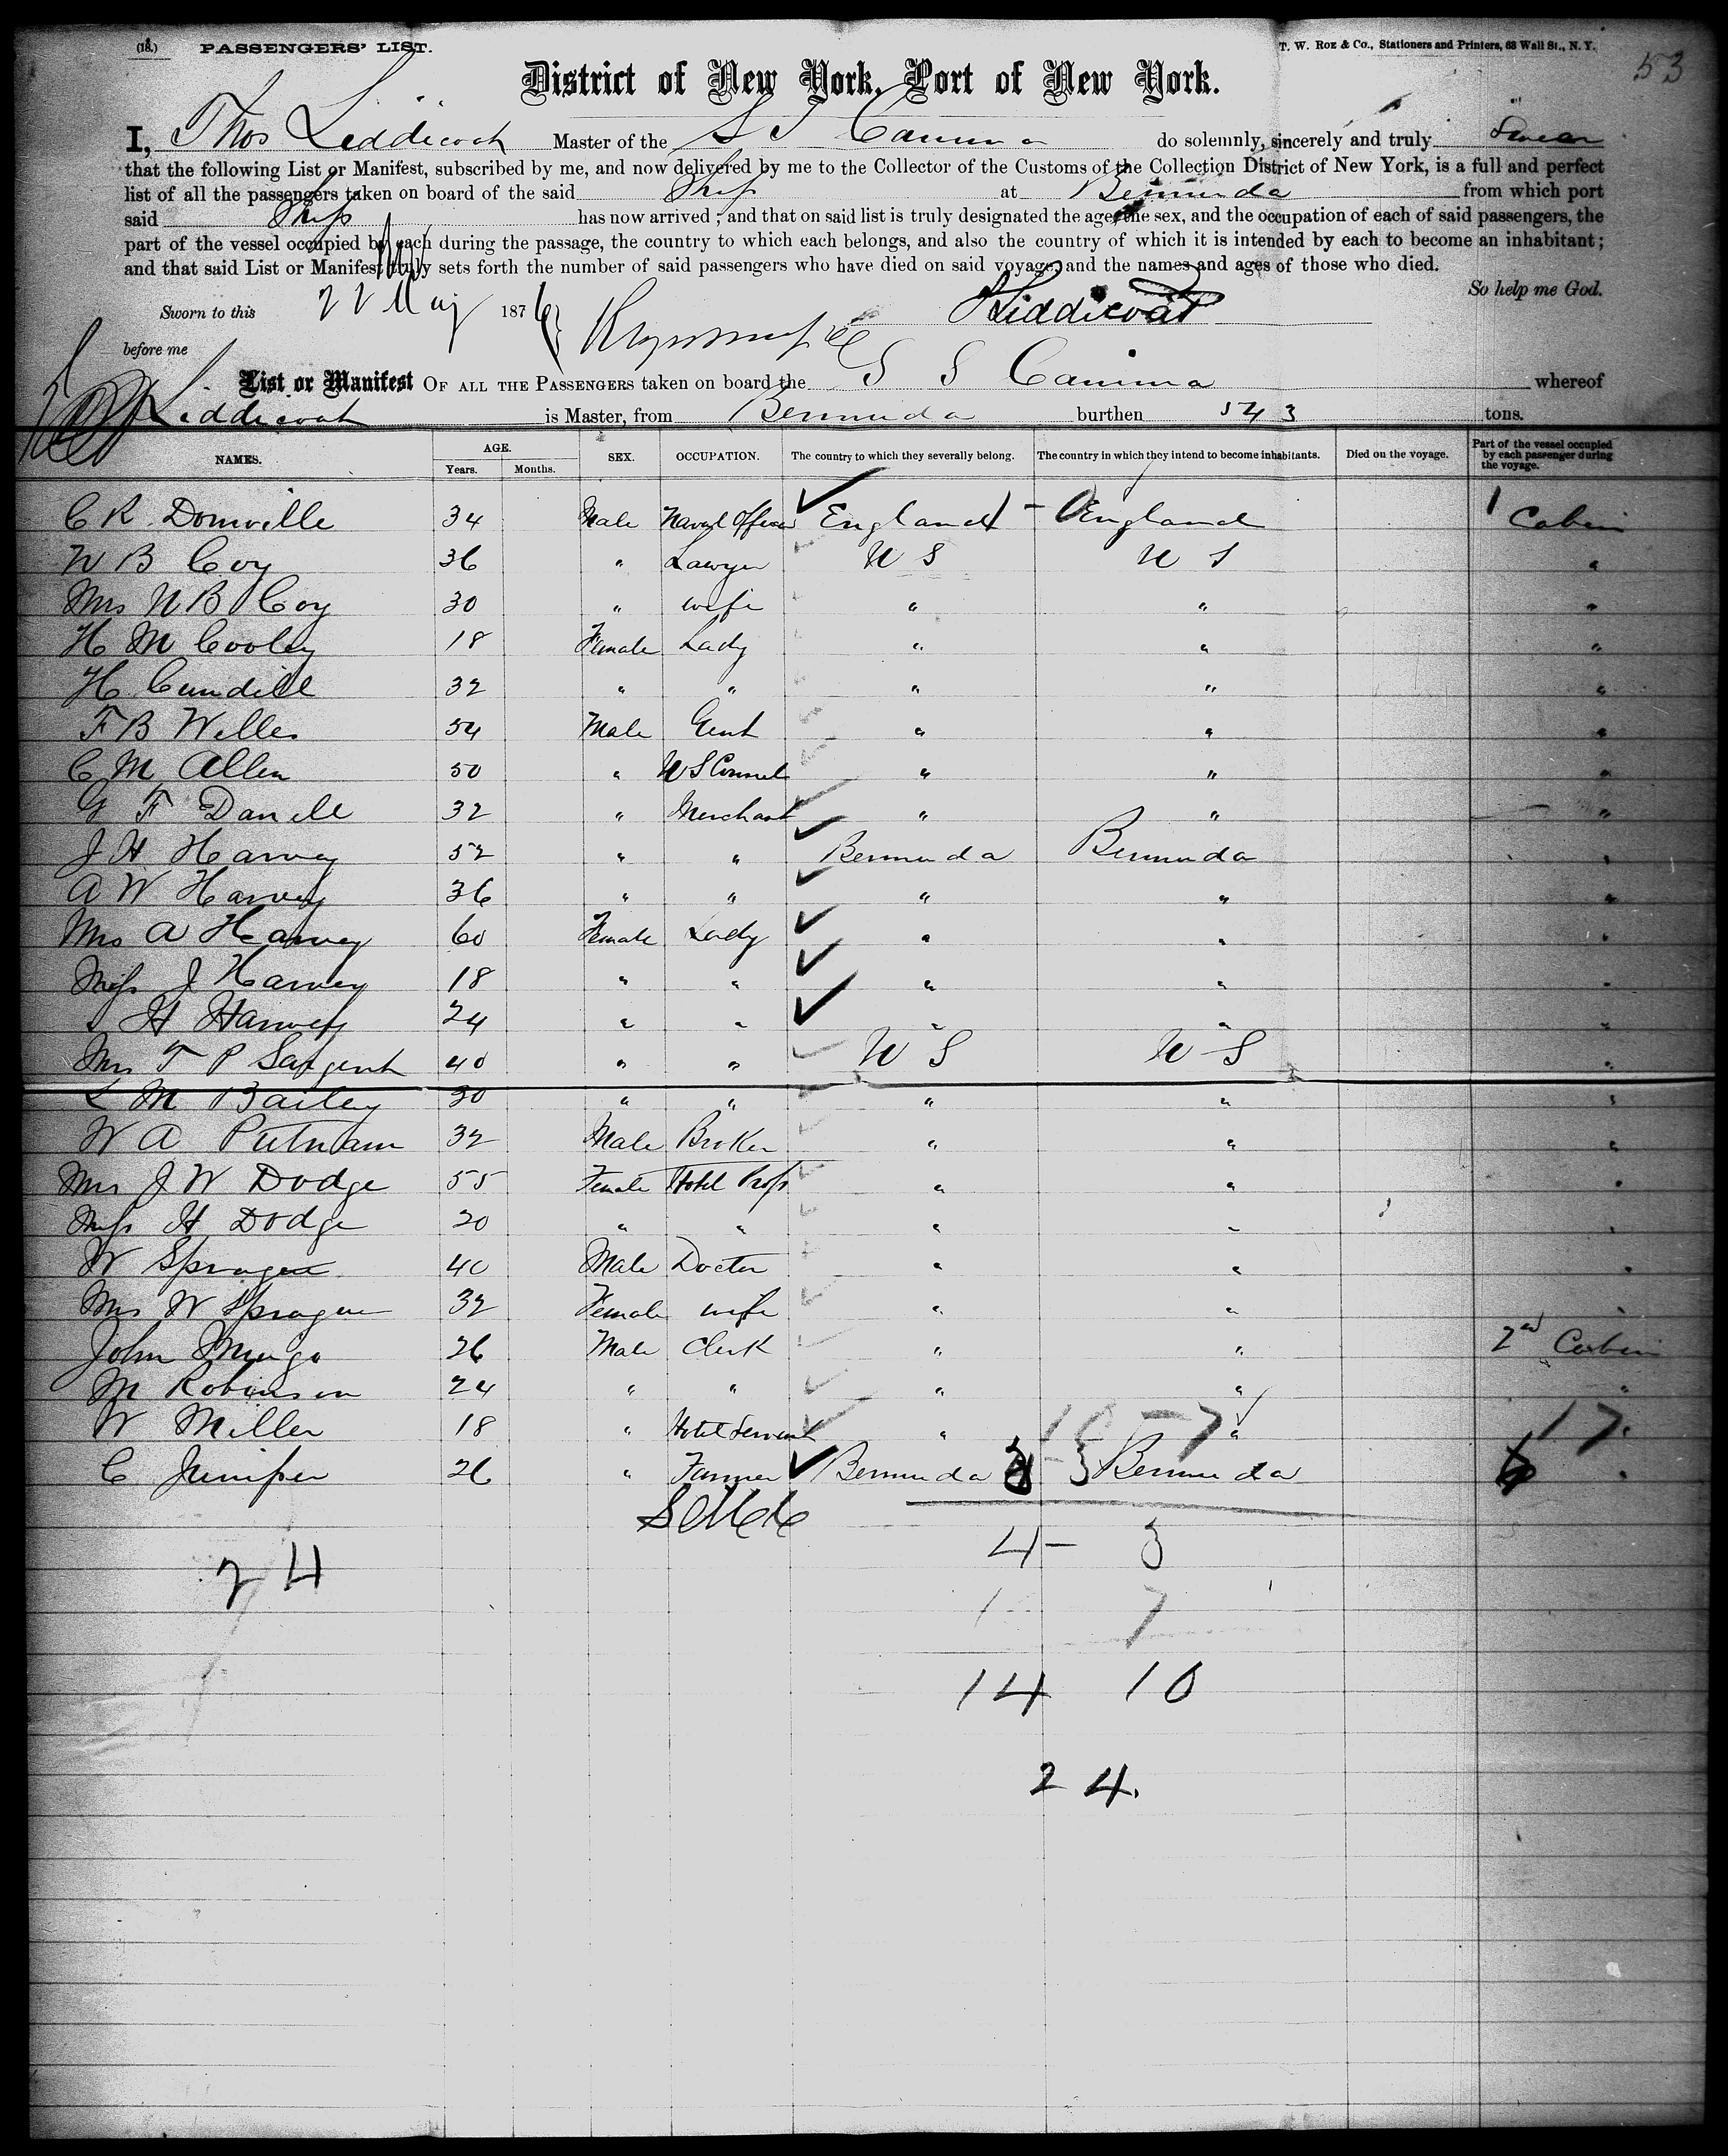 (18.) PASSENGERS' LIST. T. W. Roe & Co., Stationers and Printers, 63 Wall St., N. Y.
53
District of New York, Port of New York.
I, Thos Liddicoat Master of the S S Canima do solemnly, sincerely and truly Swear
that the following List or Manifest, subscribed by me, and now delivered by me to the Collector of the Customs of the Collection District of New York, is a full and perfect
list of all the passengers taken on board of the said Ship at Bermuda from which port
said Ship has now arrived; and that on said list is truly designated the age, the sex, and the occupation of each of said passengers, the
part of the vessel occupied by each during the passage, the country to which each belongs, and also the country of which it is intended by each to become an inhabitant;
and that said List or Manifest truly sets forth the number of said passengers who have died on said voyage, and the names and ages of those who died.
So help me God.
Sworn to this 22 May 1876 Liddicoat
before me
List or Manifest OF ALL THE PASSENGERS taken on board the S S Canima whereof
Liddicoat is Master, from Bermuda burthen 543 tons.
NAMES. AGE. Years. Months. SEX. OCCUPATION. The country to which they severally belong. The country in which they intend to become inhabitants. Died on the voyage. Part of the vessel occupied by each passenger during the voyage.
C R Domville 34 Male Naval Officer England 1 - 0 England 1 Cabin
W B Coy 36 " Lawyer U S U S "
Mrs W B Coy 30 " wife " " "
H M Cooley 18 Female Lady " " "
H Cundill 32 " " " " "
F B Welles 54 Male Gent " " "
C M Allen 50 " U S Consul " " "
G F Darrell 32 " Merchant " " "
J H Harvey 52 " " Bermuda Bermuda "
A W Harvey 36 " " " " "
Mrs A Harvey 60 Female Lady " " "
Miss J Harvey 18 " " " " "
" H Harvey 24 " " " " "
Mrs T P Sargent 40 " " U S U S "
L M Bailey 30 " " " " "
W A Putnam 32 Male Broker " " "
Mrs J W Dodge 55 Female Hotel Propr " " "
Miss H Dodge 20 " " " " "
W Sprague 40 Male Doctor " " "
Mrs W Sprague 32 Female wife " " "
John Mingo 26 Male Clerk " " 2nd Cabin
M Robinson 24 " " " " "
W Miller 18 " Hotel Servant " 10 - 7 " 17 "
C Juniper 26 " Farmer Bermuda 3 - 3 Bermuda "
4 - 3
24
1 7
14 10
24.